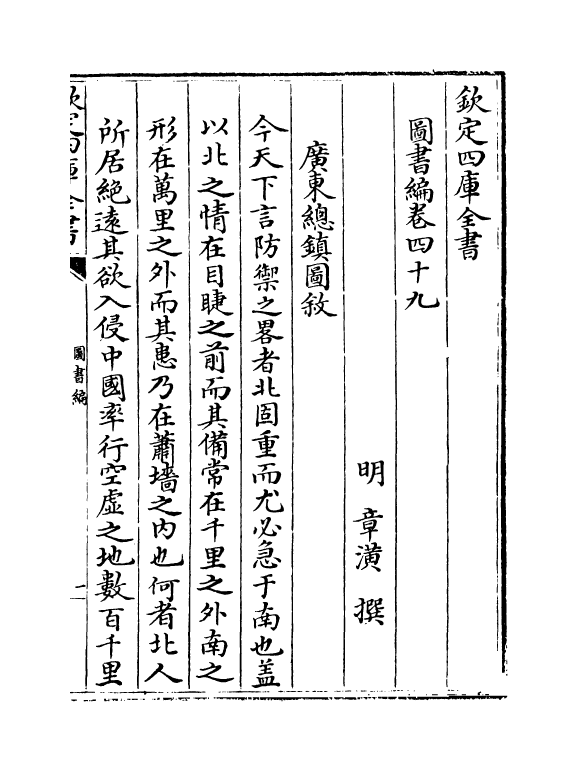 欽定四庫全書
圖書編卷四十九
明 章潢 撰
廣東總鎮圖敘
今天下言防禦之畧者北固重而尤必急于南也盖
以北之情在目睫之前而其備常在千里之外南之
形在萬里之外而其患乃在蕭墻之内也何者北人
所居絶逺其欲入侵中國率行空虛之地數百千里
欽定四庫全書
圖書編
一